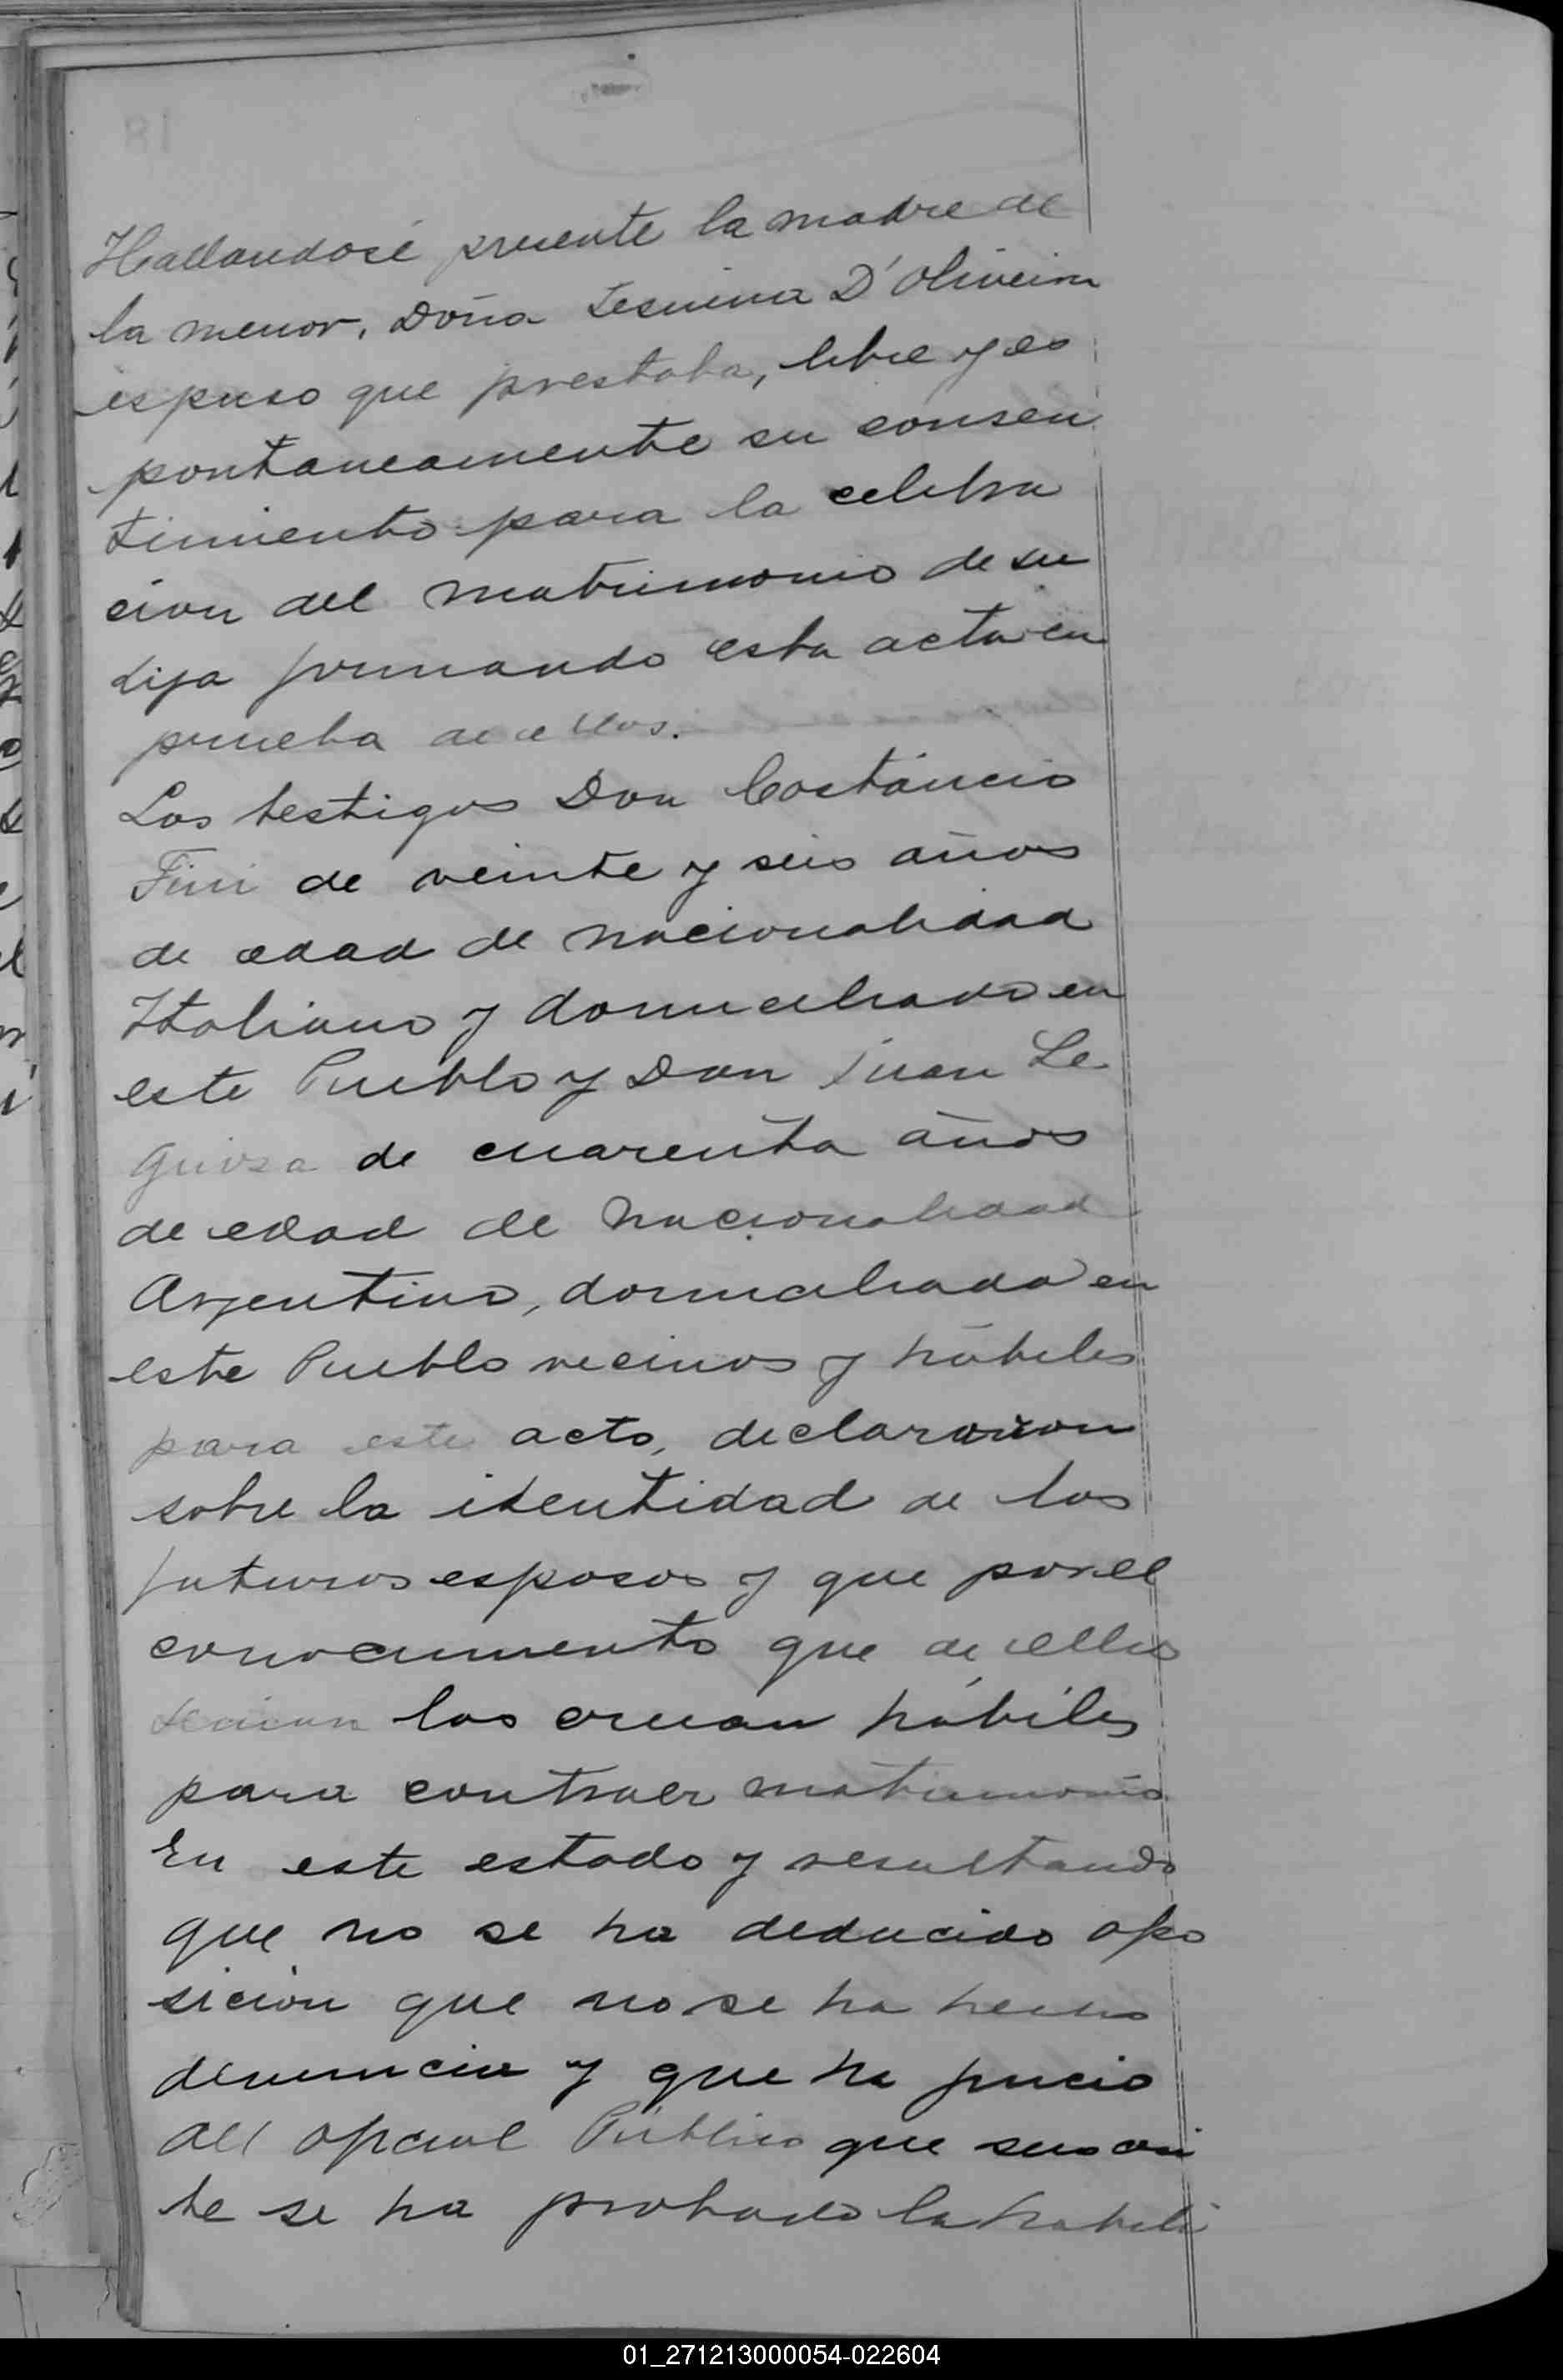 Hallandosé presente la madre de
la menor, Doña Jesuina D'Oliveira
espuso que prestaba, libre y es
pontaneamente su consen
timiento para la celebra
cion del matrimonio de su
hija firmando esta acta en
prueba de ellos.
Los testigos Don Costáncio
Fini de veinte y seis años
de edad de nacionalidad
Italiano y domiciliado en
este Pueblo y Don Juan Le
guiza de cuarenta años
de edad de nacionalidad
Argentino, domiciliado en
este Pueblo vecinos y hábiles
para este acto, declararon
sobre la identidad de los
futuros esposos y que por el
conocimiento que de ellos
tenian los creian hábiles
para contraer matrimonio
En este estado y resultando
que no se ha deducido opo
sición que no se ha hecho
denuncia y que ha juicio
del oficial Público que suscri
be se ha probado la habili
01_271213000054-022604